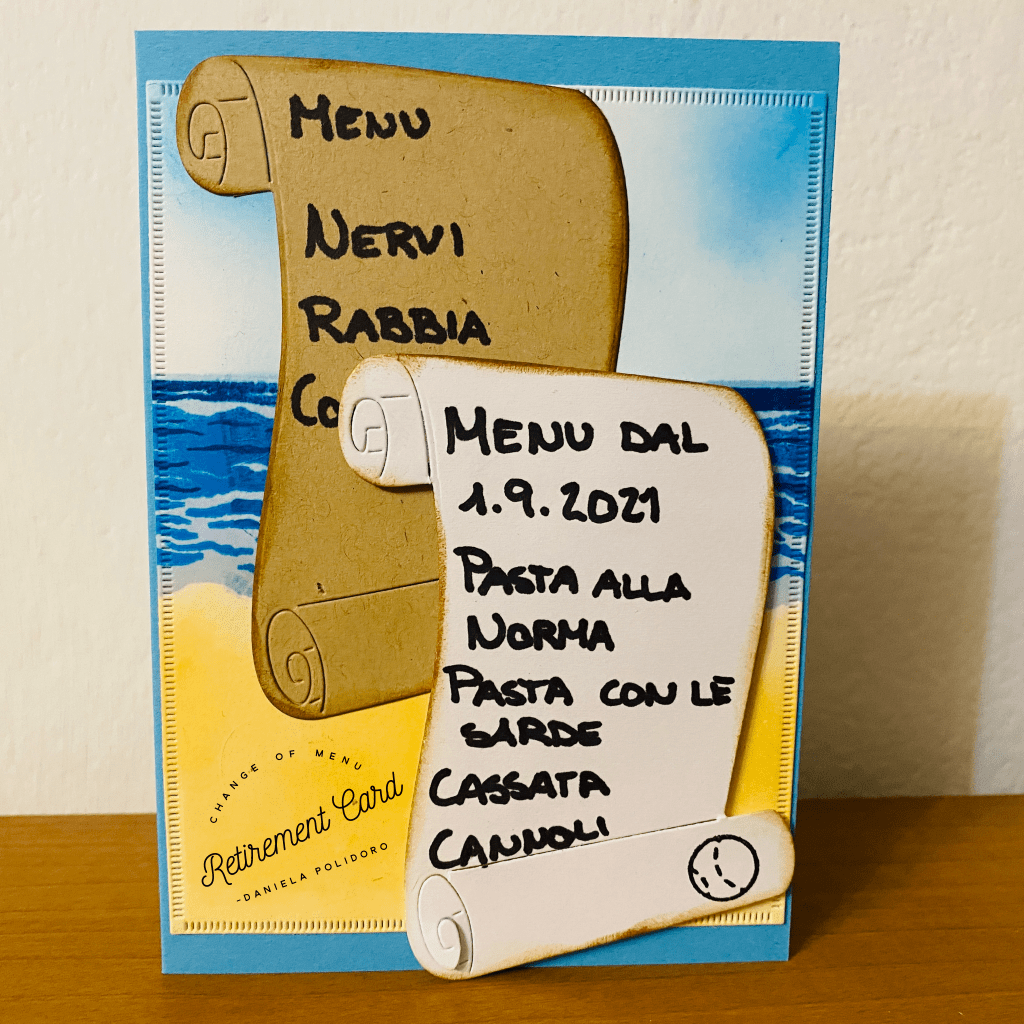 MENU
NERVI
RABBIA
CO
MENU DAL
1.9.2021
PASTA ALLA
NORMA
PASTA CON LE
SARDE
CASSATA
CANNOLI
CHANGE OF MENU
Retirement Card
-DANIELA POLIDORO